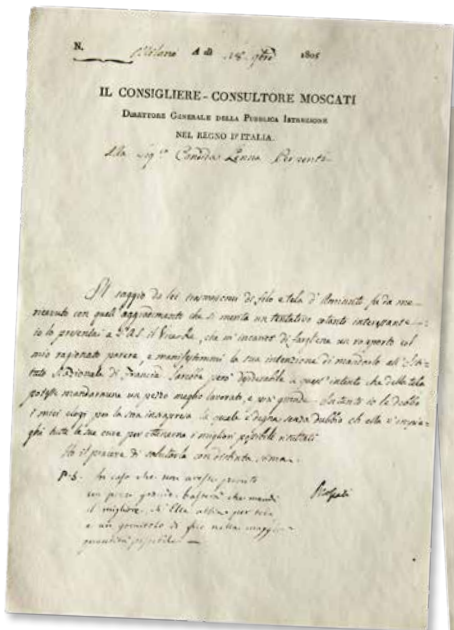 N.
Milano A dì 18 9bre 1805
IL CONSIGLIERE-CONSULTORE MOSCATI
DIRETTORE GENERALE DELLA PUBBLICA ISTRUZIONE
NEL REGNO D'ITALIA.
Alla Sig.ra Candida Lena Perpenti
Il saggio da lei trasmessomi di filo e tela d'Amianto fu da me
ricevuto con quell'aggradimento che si merita un tentativo cotanto interessante
io lo presentai a S.A.I. il Vicerè, che m'incaricò di fargliene un rapporto col
mio ragionato parere, e manifestommi la sua intenzione di mandarlo all'Isti-
tuto Nazionale di Francia. Sarebbe però desiderabile a quest'intento che della tela
potesse mandarmene un pezzo meglio lavorato, e più grande. Intanto io le
i miei elogi per la sua intrapresa la quale è degna senza dubbio che ella v'impie-
ghi tutte le sue cure per ottenerne i migliori possibili risultati.
Ho il piacere di salutarla con distinta stima.
P.S. In caso che non avesse pronto
un pezzo grande, basterà che mandi
il migliore, di Ella per tela
e un gomitolo di filo nella maggior
quantità possibile
Moscati